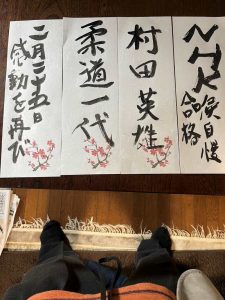 NHK
のど自慢
合格
村田英雄
柔道一代
二月二十五日
感動を再び